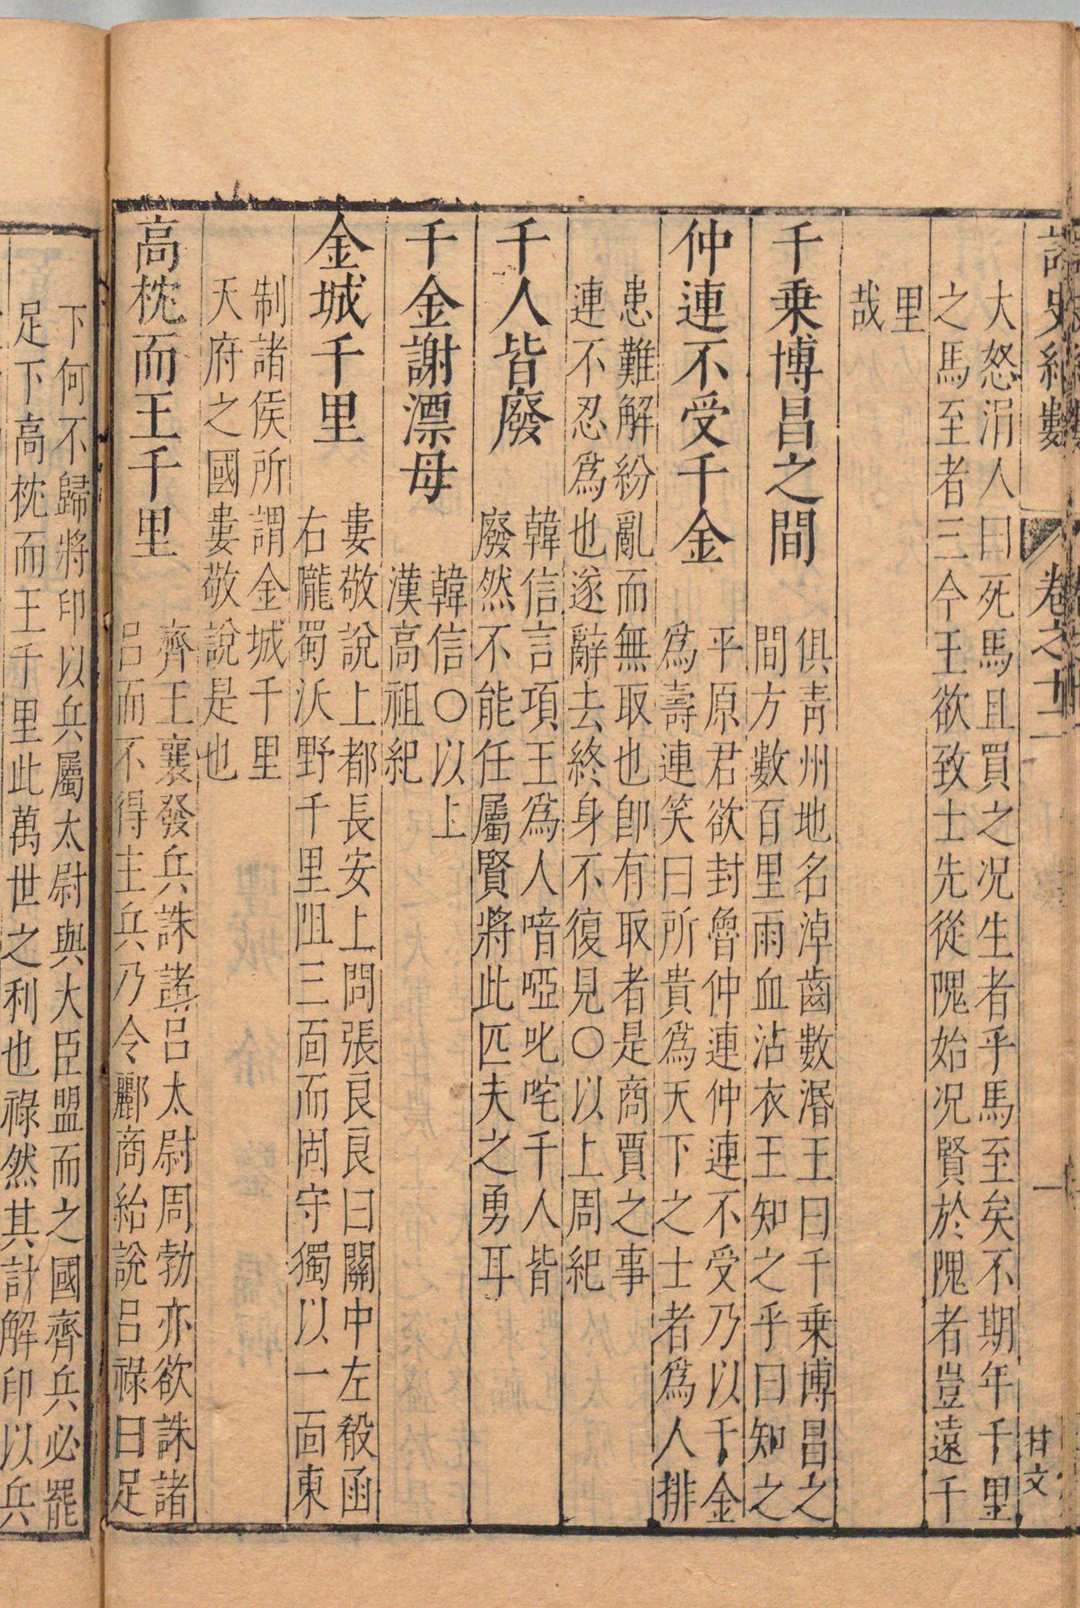 卷之十二
一
甘文
大怒涓人曰死馬且買之况生者乎馬至矣不期年千里
之馬至者三今王欲致士先從隗始况賢於隗者豈遠千
里
哉
千乘博昌之間
俱靑州地名淖齒數湣王曰千乘博昌之
間方數百里雨血沾衣王知之乎曰知之
仲連不受千金
平原君欲封魯仲連仲連不受乃以千金
爲壽連笑曰所貴爲天下之士者爲人排
患難解紛亂而無取也卽有取者是商賈之事
連不忍爲也遂辭去終身不復見〇以上周紀
千人皆廢
韓信言項王爲人喑啞叱咤千人皆
廢然不能任屬賢將此匹夫之勇耳
千金謝漂母
韓信〇以上
漢高祖紀
金城千里
婁敬說上都長安上問張良良曰關中左殽函
右隴蜀沃野千里阻三面而固守獨以一面東
制諸侯所謂金城千里
天府之國婁敬說是也
高枕而王千里
齊王襄發兵誅諸呂太尉周勃亦欲誅諸
呂而不得主兵乃令酈商紿說呂祿曰足
下何不歸將印以兵屬太尉與大臣盟而之國齊兵必罷
足下高枕而王千里此萬世之利也祿然其計解印以兵